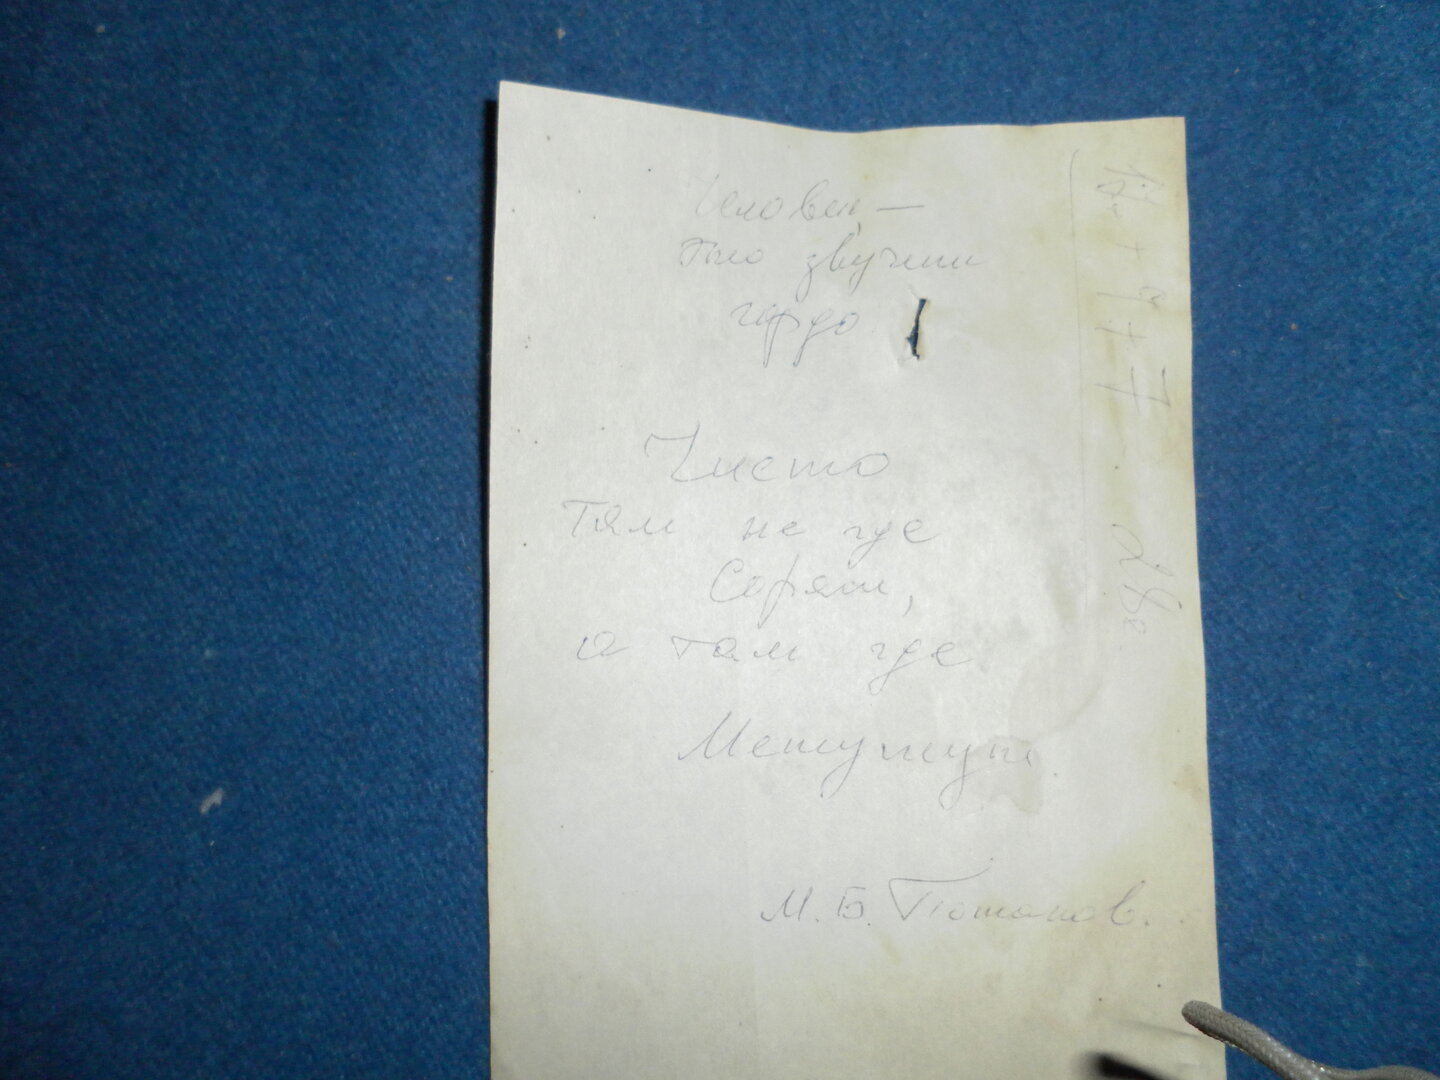 Человек —
это звучит
гордо
Чисто
там не где
Сорят,
а там где
Метут
М. Б. Потапов.